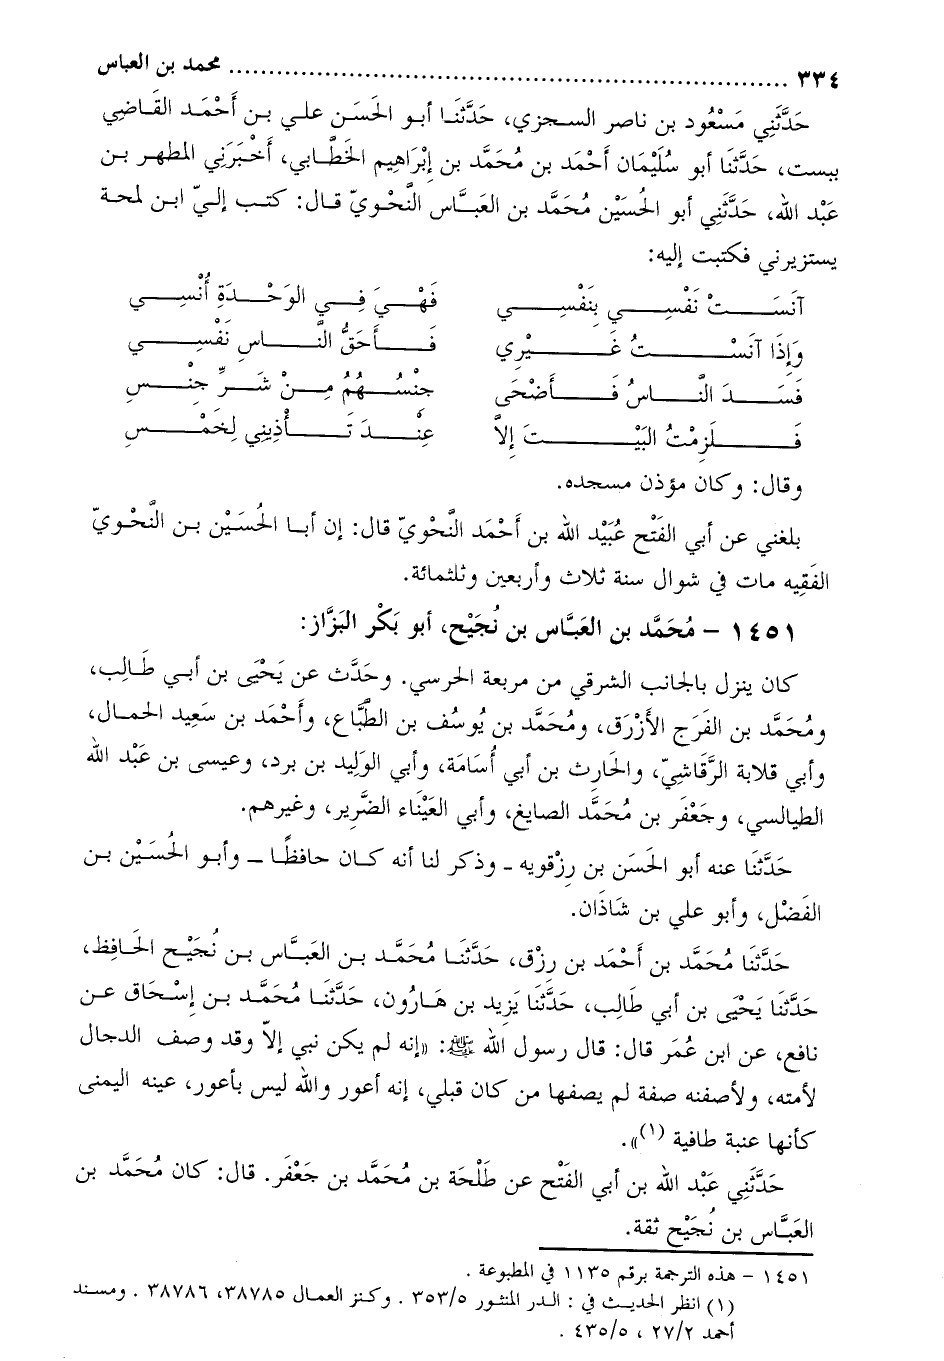 ٣٣٤ ................................................................ محمد بن العباس
حَدَّثَنِي مَسْعُود بن ناصر السجزي، حَدَّثَنَا أبو الحَسَن علي بن أَحْمَد القَاضِي
ببست، حَدَّثَنَا أبو سُلَيْمَان أَحْمَد بن مُحَمَّد بن إِبْرَاهِيم الخَطَّابي، أَخْبَرَنِي المطهر بن
عَبْد الله، حَدَّثَنِي أبو الحُسَيْن مُحَمَّد بن العَبَّاس النَّحْويّ قال: كتب إليّ ابن لمحة
يستزيرني فكتبت إليه:
آنَسَتْ نَفْسِي بِنَفْسِي فَهْيَ فِي الوَحْدَةِ أُنْسِي
وَإِذَا آنَسْتُ غَيْرِي فَأَحَقُّ النَّاسِ نَفْسِي
فَسَدَ النَّاسُ فَأَضْحَى جِنْسُهُمُ مِنْ شَرِّ جِنْسِ
فَلَزِمْتُ البَيْتَ إِلاَّ عِنْدَ تَأْذِينِي لِخَمْسِ
وقال: وكان مؤذن مسجده.
بلغني عن أبي الفَتْح عُبَيْد الله بن أَحْمَد النَّحْويّ قال: إن أبا الحُسَيْن بن النَّحْويّ
الفَقِيه مات في شوال سنة ثلاث وأربعين وثلثمائة.
١٤٥١ – مُحَمَّد بن العَبَّاس بن نُجَيْح، أبو بَكْر البَزَّاز:
كان ينزل بالجانب الشرقي من مربعة الحرسي. وحَدَّث عن يَحْيَى بن أبي طَالِب،
ومُحَمَّد بن الفَرَج الأَزْرَق، ومُحَمَّد بن يُوسُف بن الطَّبَّاع، وأَحْمَد بن سَعِيد الجمال،
وأبي قلابة الرَّقَاشِيّ، والحَارِث بن أبي أُسَامَة، وأبي الوَلِيد بن برد، وعيسى بن عَبْد الله
الطيالسي، وجَعْفَر بن مُحَمَّد الصايغ، وأبي العَيْنَاء الضَّرِير، وغيرهم.
حَدَّثَنَا عنه أبو الحَسَن بن رِزْقويه ـ وذكر لنا أنه كان حافظًا ـ وأبو الحُسَيْن بن
الفَضْل، وأبو علي بن شَاذَان.
حَدَّثَنَا مُحَمَّد بن أَحْمَد بن رِزْق، حَدَّثَنَا مُحَمَّد بن العَبَّاس بن نُجَيْح الحَافِظ،
حَدَّثَنَا يَحْيَى بن أبي طَالِب، حَدَّثَنَا يَزِيد بن هَارُون، حَدَّثَنَا مُحَمَّد بن إِسْحَاق عن
نافع، عن ابن عُمَر قال: قال رسول الله ﷺ: «إنه لم يكن نبي إلاّ وقد وصف الدجال
لأمته، ولأصفنه صفة لم يصفها من كان قبلي، إنه أعور والله ليس بأعور، عينه اليمنى
كأنها عنبة طافية (١)».
حَدَّثَنِي عَبْد الله بن أبي الفَتْح عن طَلْحَة بن مُحَمَّد بن جَعْفَر. قال: كان مُحَمَّد بن
العَبَّاس بن نُجَيْح ثقة.
١٤٥١ – هذه الترجمة برقم ١١٣٥ في المطبوعة .
(١) انظر الحديث في : الدر المنثور ٣٥٣/٥ . وكنز العمال ٣٨٧٨٥، ٣٨٧٨٦ . ومسند
أحمد ٢٧/٢ ، ٤٣٥/٥ .